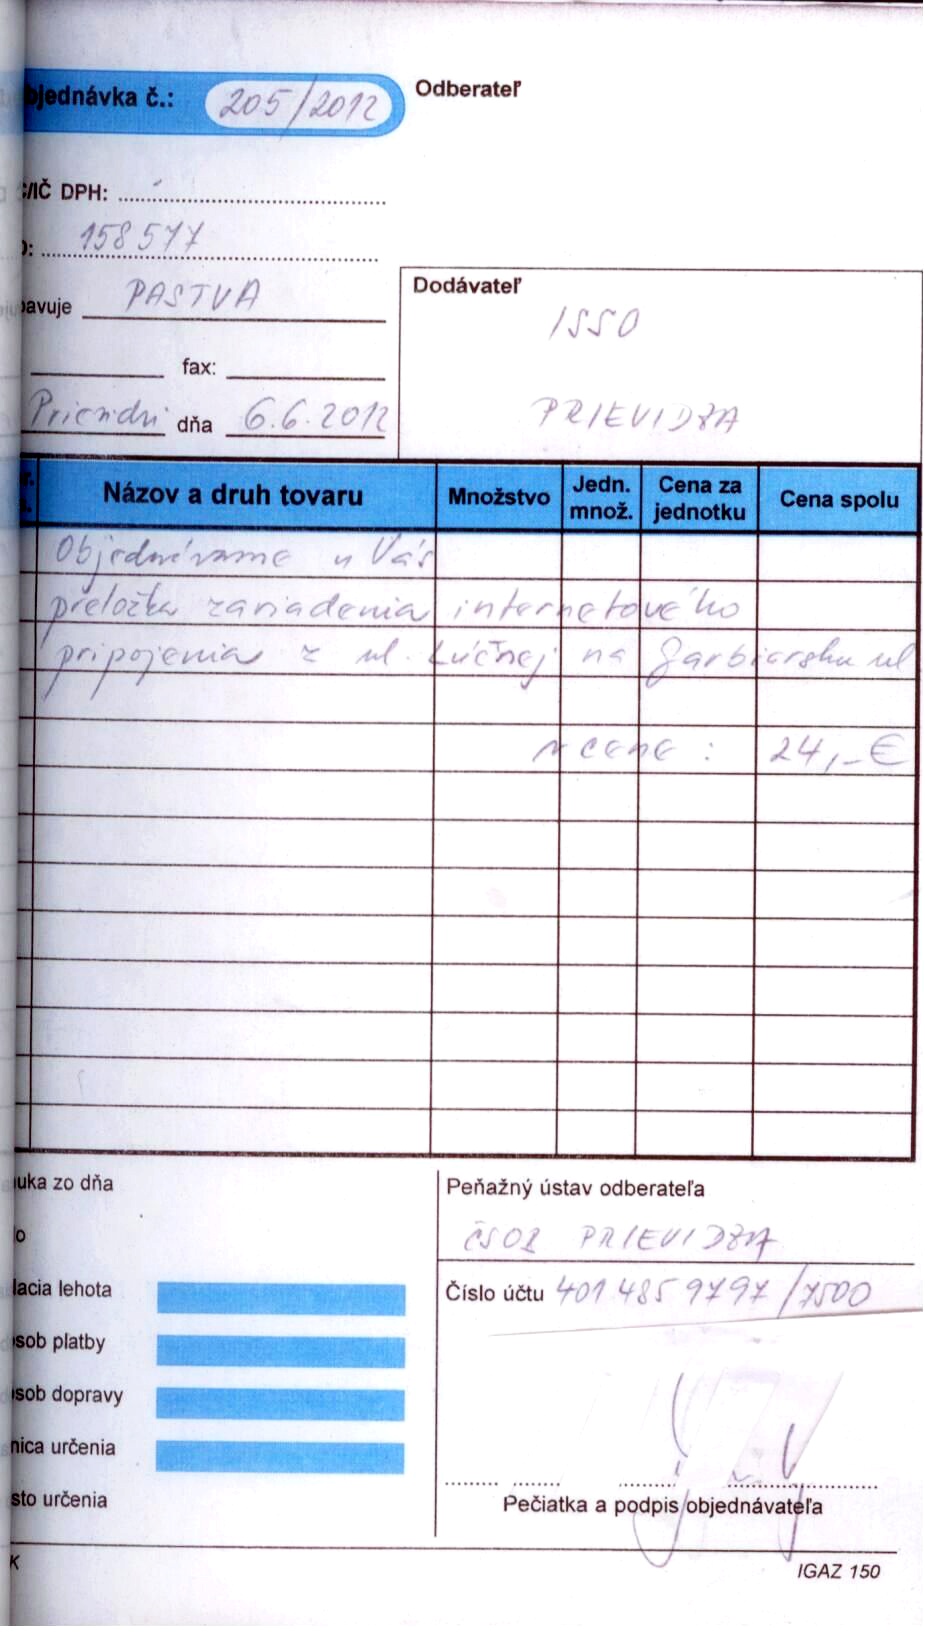 bjednávka č.: 205/2012
Odberateľ
/IČ DPH:
158577
bavuje PASTVA
Dodávateľ
ISSO
fax:
dňa 6.6.2012
PRIEVIDZA
Názov a druh tovaru Množstvo Jedn. množ. Cena za jednotku Cena spolu
Objednávame u Vás
preložka zariadenia internetového
pripojenia z ul. Lúčnej na Garbiarsku ul.
v cene : 24,-€
uka zo dňa
Peňažný ústav odberateľa
lo
ČSOB PRIEVIDZA
lacia lehota
Číslo účtu 4014859797/7500
sob platby
sob dopravy
nica určenia
sto určenia
Pečiatka a podpis objednávateľa
K
IGAZ 150